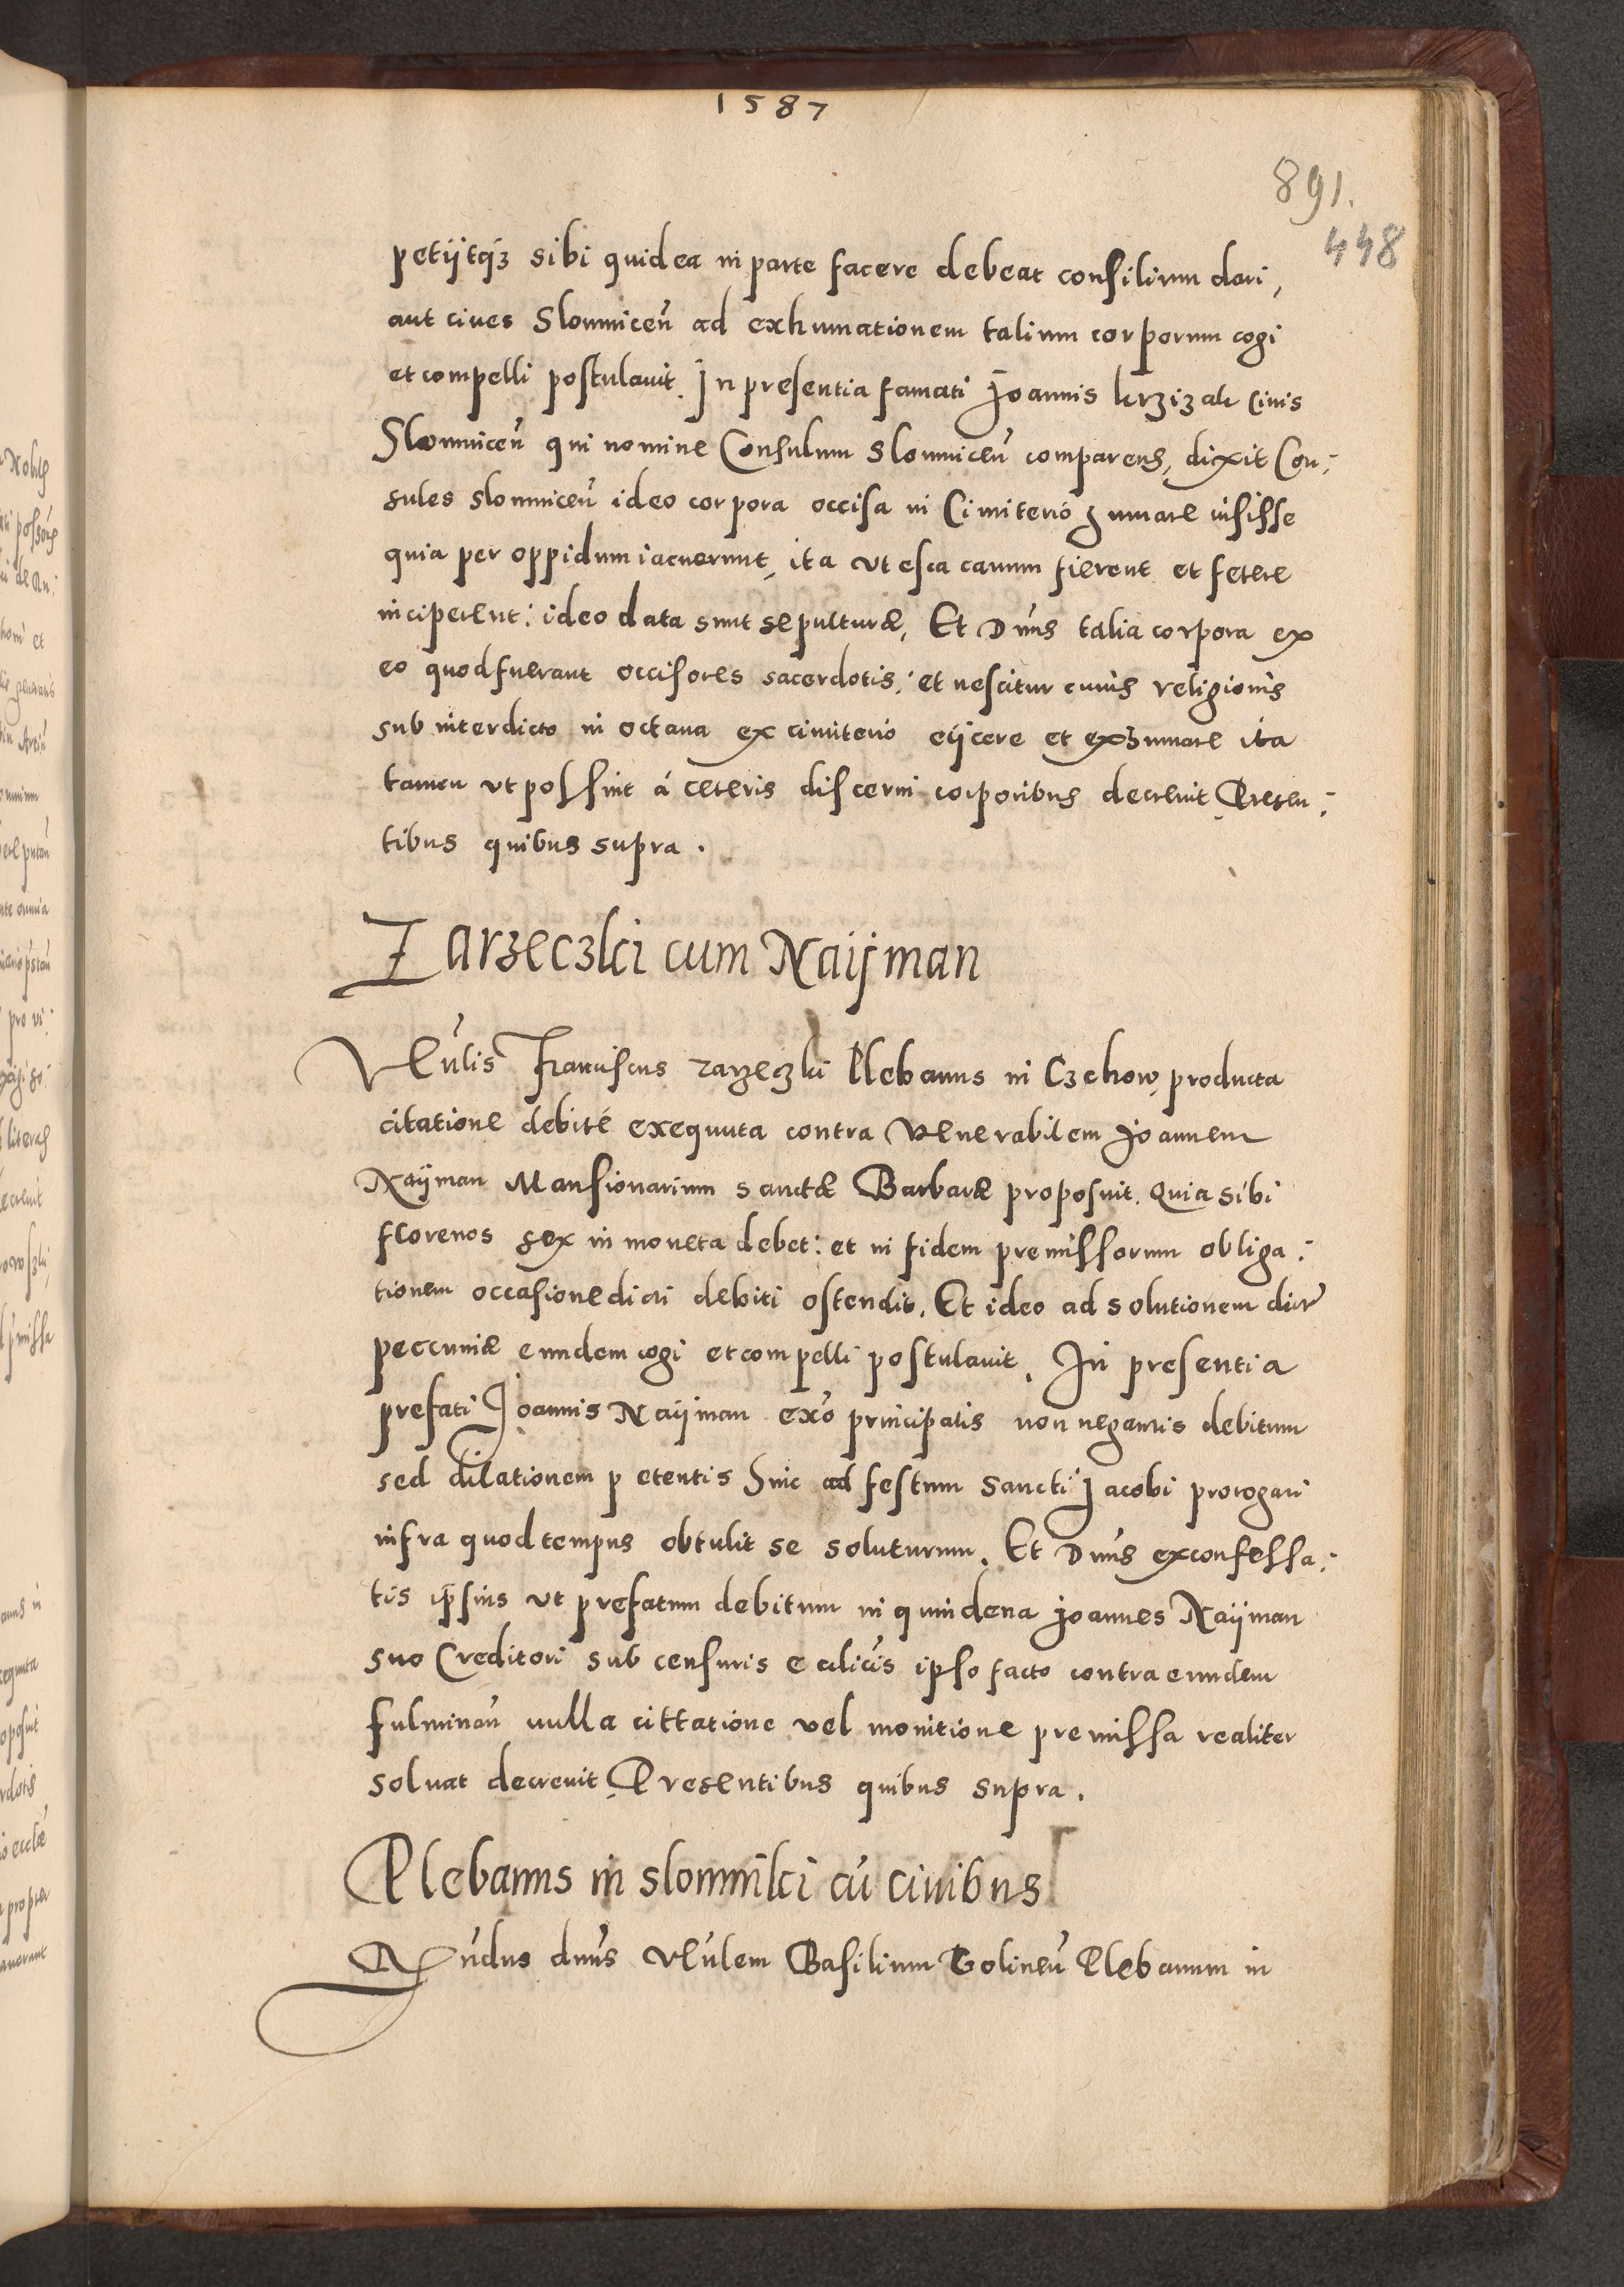 1587
891.
448
petijtq₃ sibi quid ea in parte facere debeat consilium dari,
aut ciues Slomniceñ ad exhumationem talium corporum cogi
et compelli postulauit. In presentia famati Joannis krzizak Ciuis
Slomniceñ qui nomine Consulum Slomniceñ comparens, dixit Con:
sules slomniceñ ideo corpora occisa in Cimiterio humare iusisse
quia per oppidum iacuerunt, ita vt esca canum fierent et fetere
inciperent: ideo data sunt sepulturæ, Et Dnus talia corpora ex
eo quod fuerant occisores sacerdotis, et nescitur cuius religionis
sub interdicto in octaua ex cimiterio eijcere et exhumare ita
tamen vt possint á ceteris discerni corporibus decreuit Presen:
tibus quibus supra.
Zarzeczki cum Naijman
Veñlis Franciscus zarzeczki Plebanus in Czchow, producta
citatione debité exequuta contra Venerabilem Joannem
Naijman Mansionarium sanctæ Barbaræ proposuit. Quia sibi
florenos sex in moneta debet: et in fidem premissorum obliga:
tionem occasione dicti debiti ostendit. Et ideo ad solutionem dictæ
peccuniæ eundem cogi et compelli postulauit. In presentia
prefati Joannis Naijman ex̃o principalis non negantis debitum
sed dilationem petentis hinc ad festum Sancti Jacobi prorogari
infra quod tempus obtulit se soluturum. Et Dnus ex confessa:
tis ipsius vt prefatum debitum in quindena Joannes Naijman
suo Creditori sub censuris ecclicis ipso facto contra eundem
fulminañ nulla cittatione vel monitione premissa realiter
soluat decreuit, Presentibus quibus supra.
Plebanus in slomniki cũ ciuibus
Rñdus dnus Veñlem Basilium Golineũ Plebanum in